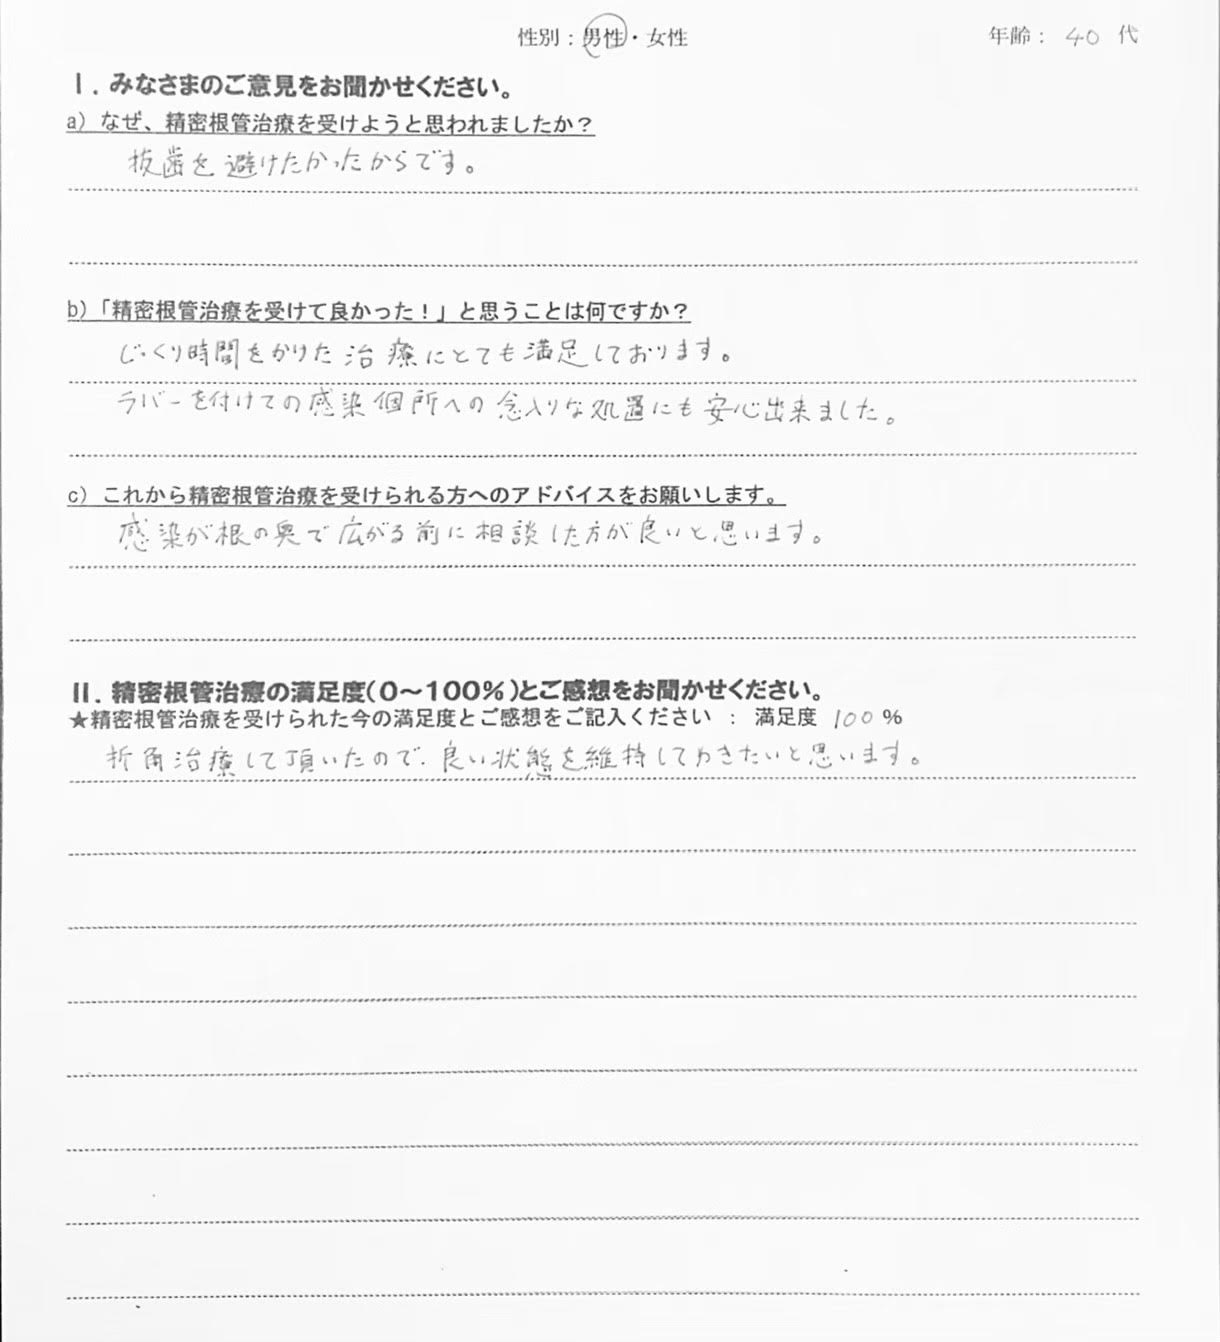 性別：男性・女性　　年齢： 40 代
Ⅰ．みなさまのご意見をお聞かせください。
a）なぜ、精密根管治療を受けようと思われましたか？
抜歯を避けたかったからです。
b）「精密根管治療を受けて良かった！」と思うことは何ですか？
じっくり時間をかけた治療にとても満足しております。
ラバーを付けての感染個所への念入りな処置にも安心出来ました。
c）これから精密根管治療を受けられる方へのアドバイスをお願いします。
感染が根の奥で広がる前に相談した方が良いと思います。
Ⅱ．精密根管治療の満足度（0～100％）とご感想をお聞かせください。
★精密根管治療を受けられた今の満足度とご感想をご記入ください ： 満足度 100 ％
折角治療して頂いたので、良い状態を維持しておきたいと思います。